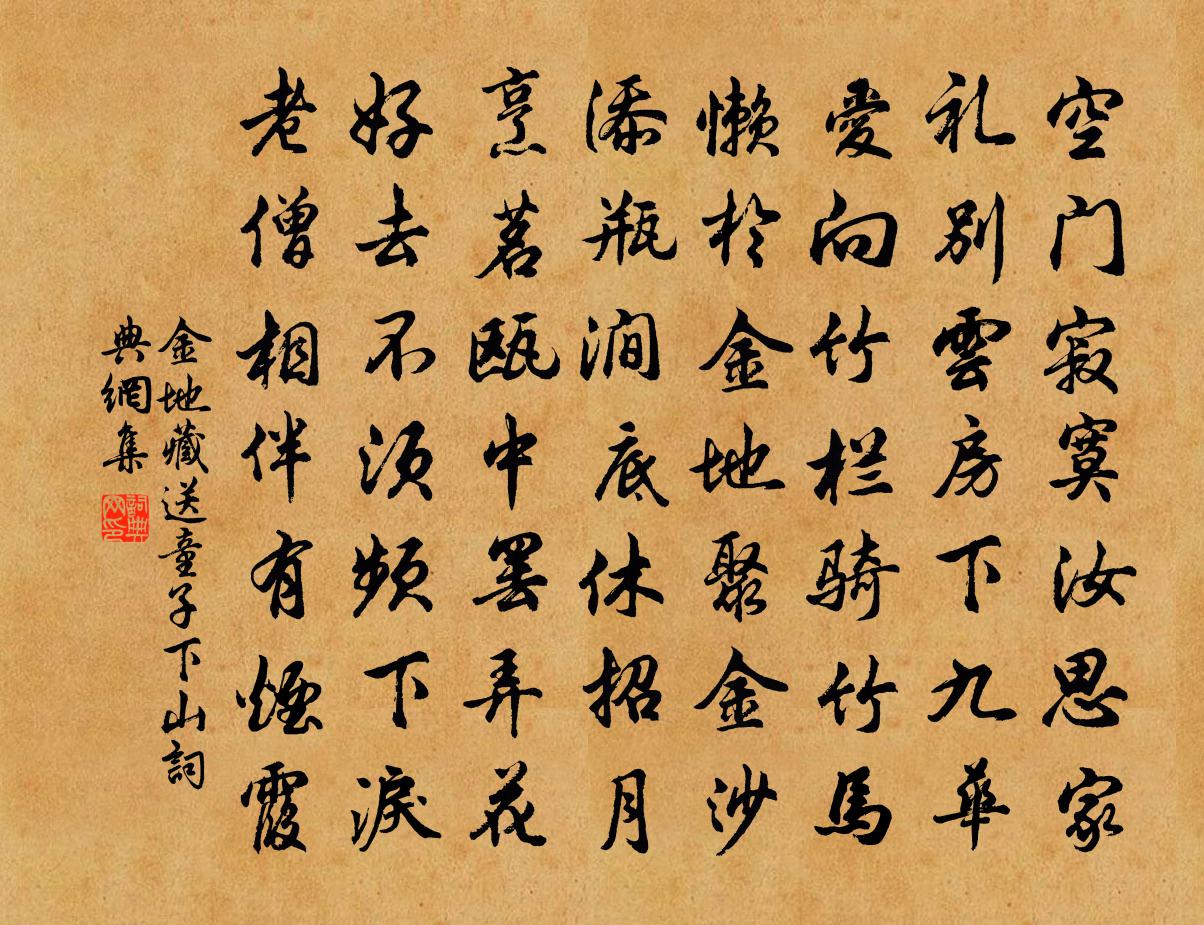 空门寂寞汝思家
礼别雲房下九華
愛向竹栏骑竹馬
懒於金地聚金沙
添瓶涧底休招月
烹茗瓯中罢弄花
好去不须频下淚
老僧相伴有煙霞
金地藏送童子下山詞
典網集
詞典
网印